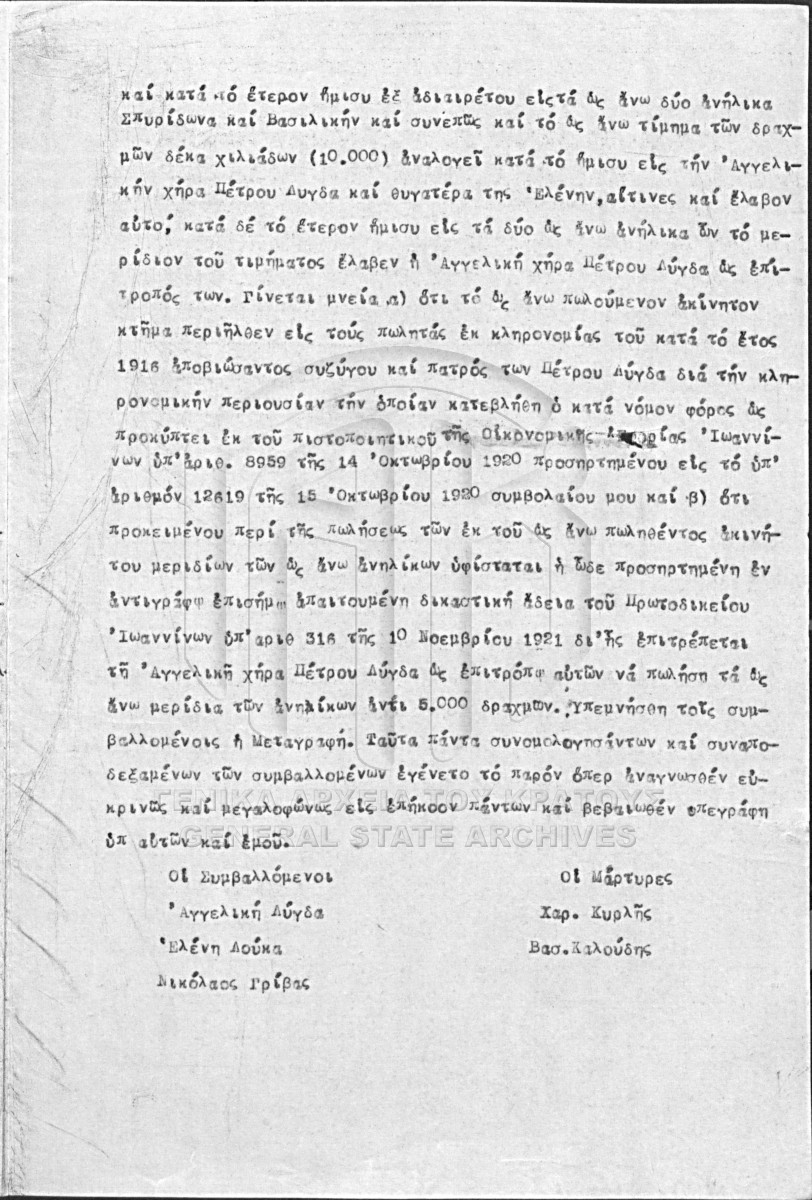 καί κατά τό ἕτερον ἥμισυ ἐξ ἀδιαιρέτου εἰςτά ὡς ἄνω δύο ἀνήλικα
Σπυρίδωνα καί Βασιλικήν καί συνεπῶς καί τό ὡς ἄνω τίμημα τῶν δραχ-
μῶν δέκα χιλιάδων (10.000) ἀναλογεῖ κατά τό ἥμισυ εἰς τήν Ἀγγελι-
κήν χήρα Πέτρου Λυγδα καί θυγατέρα της Ἑλένην,αἵτινες καί ἔλαβον
αὐτό, κατά δέ τό ἕτερον ἥμισυ εἰς τά δύο ὡς ἄνω ἀνήλικα ὧν τό με-
ρίδιον τοῦ τιμήματος ἔλαβεν ἡ Ἀγγελική χήρα Πέτρου Λύγδα ὡς ἐπί-
τροπός των. Γίνεται μνεία α) ὅτι τό ὡς ἄνω πωλούμενον ἀκίνητον
κτῆμα περιῆλθεν εἰς τούς πωλητάς ἐκ κληρονομίας τοῦ κατά τό ἔτος
1916 ἀποβιώσαντος συζύγου καί πατρός των Πέτρου Λύγδα διά τήν κλη-
ρονομικήν περιουσίαν τήν ὁποίαν κατεβλήθη ὁ κατά νόμον φόρος ὡς
προκύπτει ἐκ τοῦ πιστοποιητικοῦ τῆς Οἰκονομικῆς Ἐφορίας Ἰωαννί-
νων ὑπ'ἀριθ. 8959 τῆς 14 Ὀκτωβρίου 1920 προσηρτημένου εἰς τό ὑπ'
ἀριθμόν 12619 τῆς 15 Ὀκτωβρίου 1920 συμβολαίου μου καί β) ὅτι
προκειμένου περί τῆς πωλήσεως τῶν ἐκ τοῦ ὡς ἄνω πωληθέντος ἀκινή-
του μεριδίων τῶν ὡς ἄνω ἀνηλίκων ὑφίσταται ἡ ὧδε προσηρτημένη ἐν
ἀντιγράφῳ ἐπισήμῳ ἀπαιτουμένη δικαστική ἄδεια τοῦ Πρωτοδικείου
Ἰωαννίνων ὑπ'ἀριθ 316 τῆς 10 Νοεμβρίου 1921 δι'ἧς ἐπιτρέπεται
τῇ Ἀγγελικῇ χήρα Πέτρου Λύγδα ὡς ἐπιτρόπῳ αὐτῶν νά πωλήση τά ὡς
ἄνω μερίδια τῶν ἀνηλίκων ἀντί 5.000 δραχμῶν. Ὑπεμνήσθη τοῖς συμ-
βαλλομένοις ἡ Μεταγραφή. Ταῦτα πάντα συνομολογησάντων καί συναπο-
δεξαμένων τῶν συμβαλλομένων ἐγένετο τό παρόν ὅπερ ἀναγνωσθέν εὐ-
κρινῶς καί μεγαλοφώνως εἰς ἐπήκοον πάντων καί βεβαιωθέν υπεγράφη
ὑπ αὐτῶν καί ἐμοῦ.
ΓΕΝΙΚΑ ΑΡΧΕΙΑ ΤΟΥ ΚΡΑΤΟΥΣ
GENERAL STATE ARCHIVES
Οἱ Συμβαλλόμενοι
Ἀγγελική Λύγδα
Ἑλένη Λούκα
Νικόλαος Γρίβας
Οἱ Μάρτυρες
Χαρ. Κυρλῆς
Βασ.Καλούδης